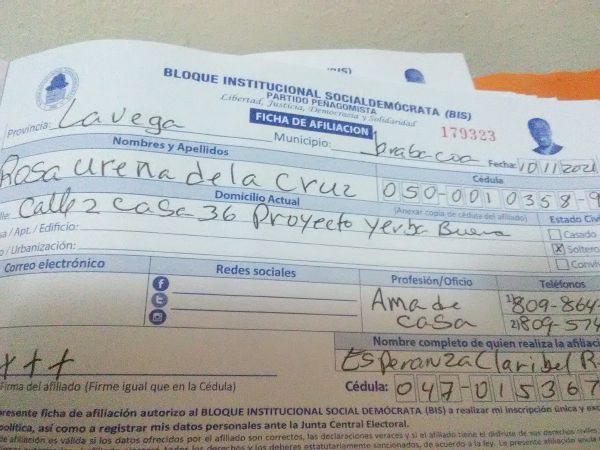 BLOQUE INSTITUCIONAL SOCIALDEMÓCRATA (BIS)
PARTIDO PEÑAGOMISTA
Libertad, Justicia, Democracia y Solidaridad
FICHA DE AFILIACIÓN
179323
Provincia: La vega
Municipio: Jarabacoa
Fecha: 10/11/202
Nombres y Apellidos
Cédula
Rosa ureña de la Cruz
050-0010358-9
Domicilio Actual
(Anexar copia de cédula del afiliado)
Estado Civi
Calle 2 casa-36 Proyecto yerba Buena
Casado
/ Apt. / Edificio:
X Soltero
/ Urbanización:
Convi
Correo electrónico
Redes sociales
Profesión/Oficio
Teléfonos
Ama de casa
1) 809-864-
2) 809-574
Nombre completo de quien realiza la afiliac
+++
Esperanza Claribel R
Firma del afiliado (Firme igual que en la Cédula)
Cédula: 047-015367
presente ficha de afiliación autorizo al BLOQUE INSTITUCIONAL SOCIAL DEMÓCRATA (BIS) a realizar mi inscripción única y exc
política, así como a registrar mis datos personales ante la Junta Central Electoral.
de afiliación es válida si los datos ofrecidos por el afiliado son correctos, las declaraciones veraces y si el titular tiene el disfrute de sus derechos civiles